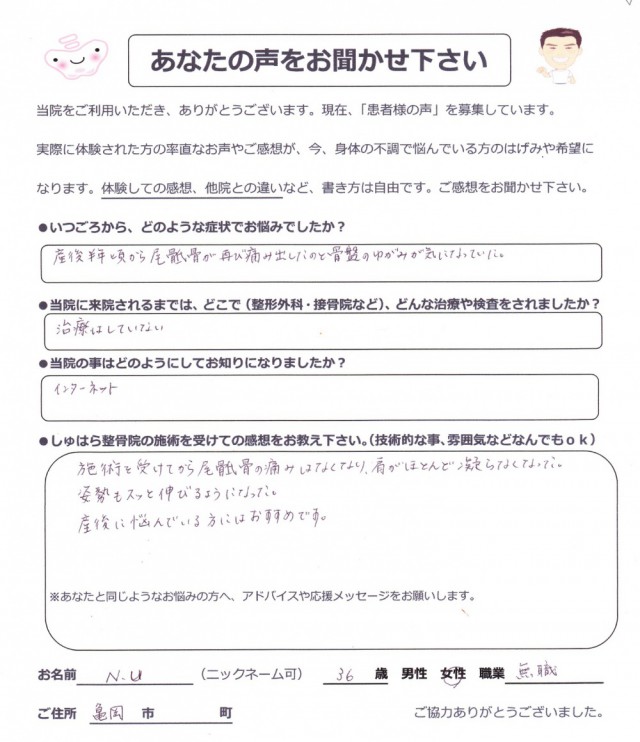 あなたの声をお聞かせ下さい
当院をご利用いただき、ありがとうございます。現在、「患者様の声」を募集しています。
実際に体験された方の率直なお声やご感想が、今、身体の不調で悩んでいる方のはげみや希望に
なります。体験しての感想、他院との違いなど、書き方は自由です。ご感想をお聞かせ下さい。
●いつごろから、どのような症状でお悩みでしたか?
産後半年頃から尾骶骨が再び痛み出したのと骨盤のゆがみが気になっていた。
●当院に来院されるまでは、どこで(整形外科・接骨院など)、どんな治療や検査をされましたか?
治療はしていない
●当院の事はどのようにしてお知りになりましたか?
インターネット
●しゅはら整骨院の施術を受けての感想をお教え下さい。(技術的な事、雰囲気などなんでもok)
施術を受けてから尾骶骨の痛みはなくなり、肩がほとんど凝らなくなった。
姿勢もスッと伸びるようになった。
産後に悩んでいる方にはおすすめです。
※あなたと同じようなお悩みの方へ、アドバイスや応援メッセージをお願いします。
お名前 N.U (ニックネーム可) 36 歳 男性 女性 職業 無職
ご住所 亀岡 市 町 ご協力ありがとうございました。